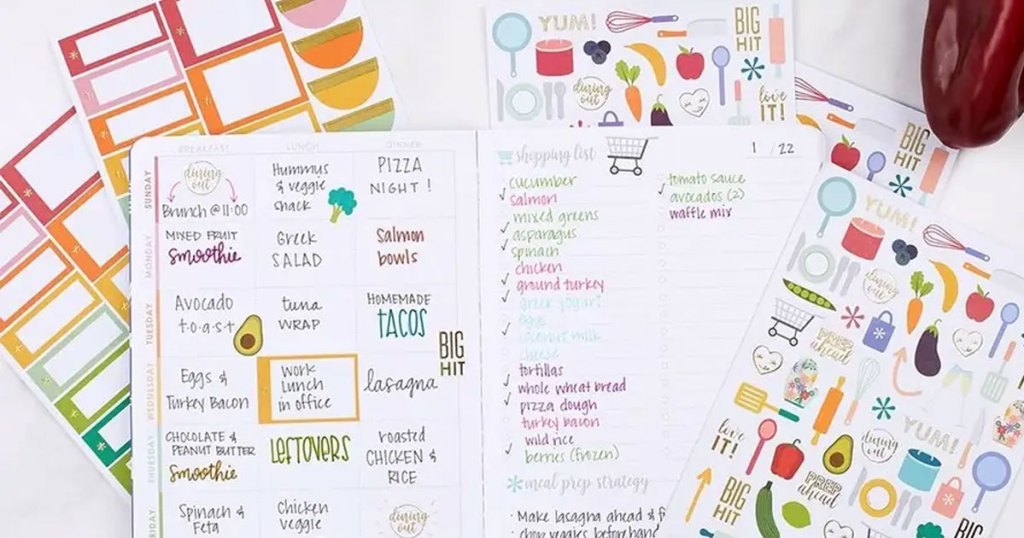 YUM!
BIG
HIT
dining
out
love
it!
BIG
HIT
BREAKFAST LUNCH DINNER
SUNDAY
dining
out
Brunch @ 11:00
Hummus
& veggie
snack
PIZZA
NIGHT!
MONDAY
MIXED FRUIT
smoothie
Greek
SALAD
Salmon
bowls
TUESDAY
Avocado
toast
tuna
WRAP
HOMEMADE
TACOS
BIG
HIT
WEDNESDAY
Eggs &
Turkey Bacon
work
lunch
in office
lasagna
THURSDAY
CHOCOLATE &
PEANUT BUTTER
Smoothie
LEFTOVERS
roasted
CHICKEN &
RICE
FRIDAY
Spinach &
Feta
Chicken
veggie
dining
out
shopping list
1 / 22
cucumber
salmon
mixed greens
asparagus
spinach
chicken
ground turkey
greek yogurt
eggs
coconut milk
cheese
tortillas
whole wheat bread
pizza dough
turkey bacon
wild rice
berries (frozen)
tomato sauce
avocados (2)
waffle mix
meal prep strategy
• Make lasagna ahead &
• chop veggies beforehand
YUM!
dining
out
PREP
ahead
love
IT!
dining
out
YUM!
PREP
ahead
BIG
HIT
BIG
HIT